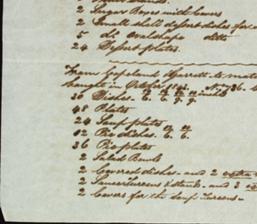 2 Sugar Boxes with covers
2 Small shell dessert dishes for
5 do. ovalshape ditto
24 Dessert plates.
From Copeland & Garrett to
bought in October
36 Dishes
48 Plates
24 Soup plates
12 Pie dishes
36 Pie plates
2 Salad Bowls
2 Covered dishes - and 2
2 Sauce Tureens & stands - and 2
2 Covers for the Soup Tureens -